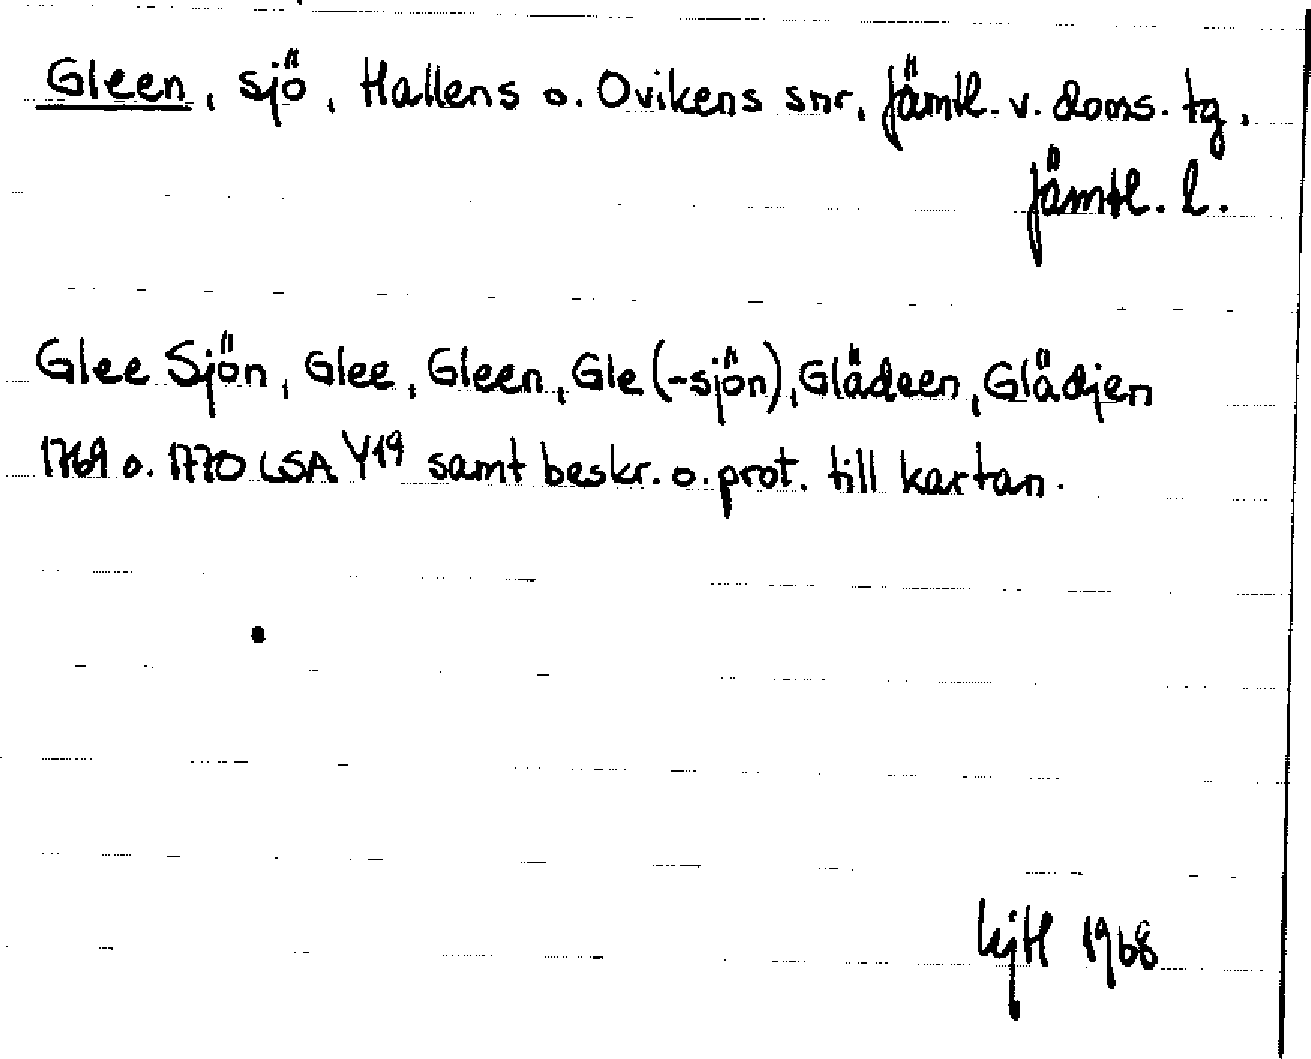 Gleen, sjö, Hallens o. Ovikens snr, Jämtl. v. doms. tg.
Jämtl. l.
Glee Sjön, Glee, Gleen, Gle (-sjön), Glädeen, Glädjen
1769 o. 1770 LSA Y19 samt beskr. o. prot. till kartan.
1968